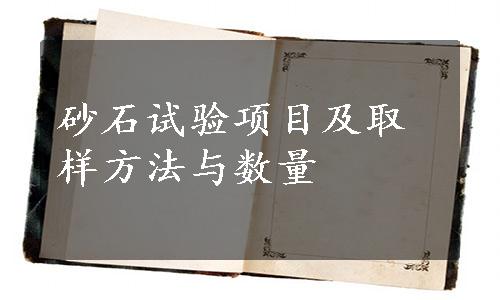 砂石试验项目及取
样方法与数量